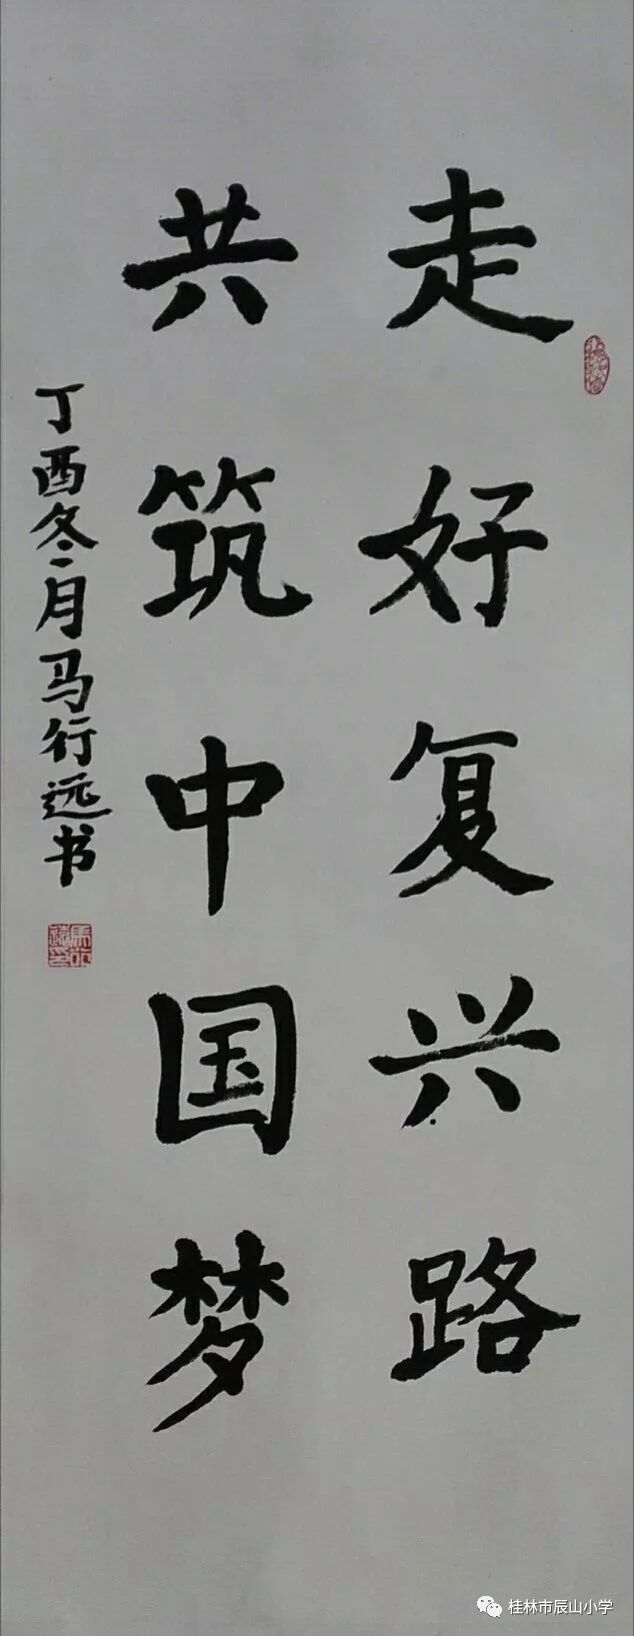 走好复兴路
共筑中国梦
丁酉冬月马行远书
桂林市辰山小学